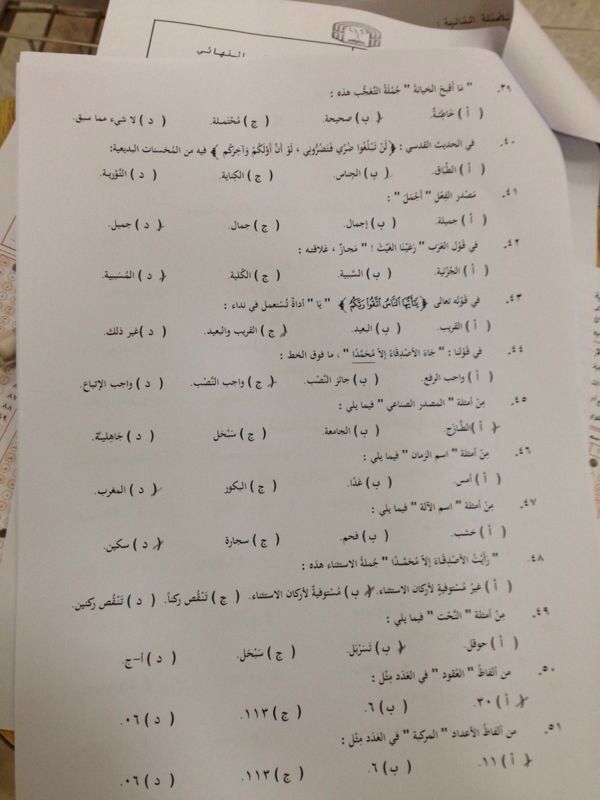 الأسئلة الثانية :
النهائي
٣٩. " مَا أقبحَ الخيانَة " جُملَةُ التَّعَجُّب هذه :
( أ ) خَاطِئةٌ. ( ب ) صحيحة. ( ج ) مُحْتَمـلة. ( د ) لا شيء مما سبق.
٤٠. في الحديث القدسي : ﴿ لَنْ تَبْلُغُوا ضُرِّي فَتَضُرُّونِي ، لَوْ أنَّ أوَّلَكُمْ وَآخِرَكُم ﴾ فيه من المُحَسنات البديعية:
( أ ) الطِّبَاق. ( ب ) الجِناس. ( ج ) الكِناية. ( د ) التَّوْرِيـة.
٤١. مَصْدر الفِعْل " أجْمَلَ " :
( أ ) جميلة. ( ب ) إجمال. ( ج ) جمال. ( د ) جميل.
٤٢. في قَوْل العَرَب " رَعَيْنَا الغَيْثَ ! " مَجازٌ ، عَلاقتـه :
( أ ) الجُزْئية. ( ب ) السَّببية. ( ج ) الكُلية. ( د ) المُسَببية.
٤٣. في قَوْله تعالى ﴿ يَٰٓأَيُّهَا ٱلنَّاسُ ٱتَّقُوا۟ رَبَّكُمُ ﴾ " يَا " أداةٌ تُستَعمل في نداء :
( أ ) القريب. ( ب ) البعيد. ( ج ) القريب والبعيد. ( د ) غير ذلك.
٤٤. في قَوْلنا : " جَاءَ الأصْدِقَاءُ إلاَّ مُحَمَّدًا " ، ما فوق الخط :
( أ ) واجب الرفع. ( ب ) جائز النَّصْب. ( ج ) واجب النَّصْب. ( د ) واجب الإتباع.
٤٥. مِنْ أمثلة " المصدر الصناعي " فيما يلي :
( أ ) الطَّازَج. ( ب ) الجامعة. ( ج ) سَبْحَل ( د ) جَاهِليَّـة.
٤٦. مِنْ أمثلة " اسم الزمان " فيما يلي :
( أ ) أمس. ( ب ) غدًا. ( ج ) البكور ( د ) المغرب.
٤٧. مِنْ أمثلة " اسم الآلة " فيما يلي :
( أ ) خشب. ( ب ) فحم. ( ج ) سجارة ( د ) سكين.
٤٨. " رَأيْتُ الأصْدِقَـاءَ إلاَّ مُحَمَّـدًا " جُملةُ الاستثناء هذه :
( أ ) غيرُ مُستوفيةٍ لأركان الاستثناء. ( ب ) مُستوفيةٌ لأركان الاستثناء. ( ج ) تَنْقُص ركناً. ( د ) تَنْقُص ركنَين.
٤٩. مِنْ أمثلة " النَّحْت " فيما يلي :
( أ ) حوقل. ( ب ) تَسَرْبَل. ( ج ) سَبْحَل. ( د ) أ-ج.
٥٠. من ألفاظُ " العُقود " في العَدَد مِثْل :
( أ ) ٣٠. ( ب ) ٦. ( ج ) ١١٣. ( د ) ٠٦.
٥١. من ألفاظُ الأعداد " المركبة " في العَدَد مِثْل :
( أ ) ١١. ( ب ) ٦. ( ج ) ١١٣. ( د ) ٠٦.